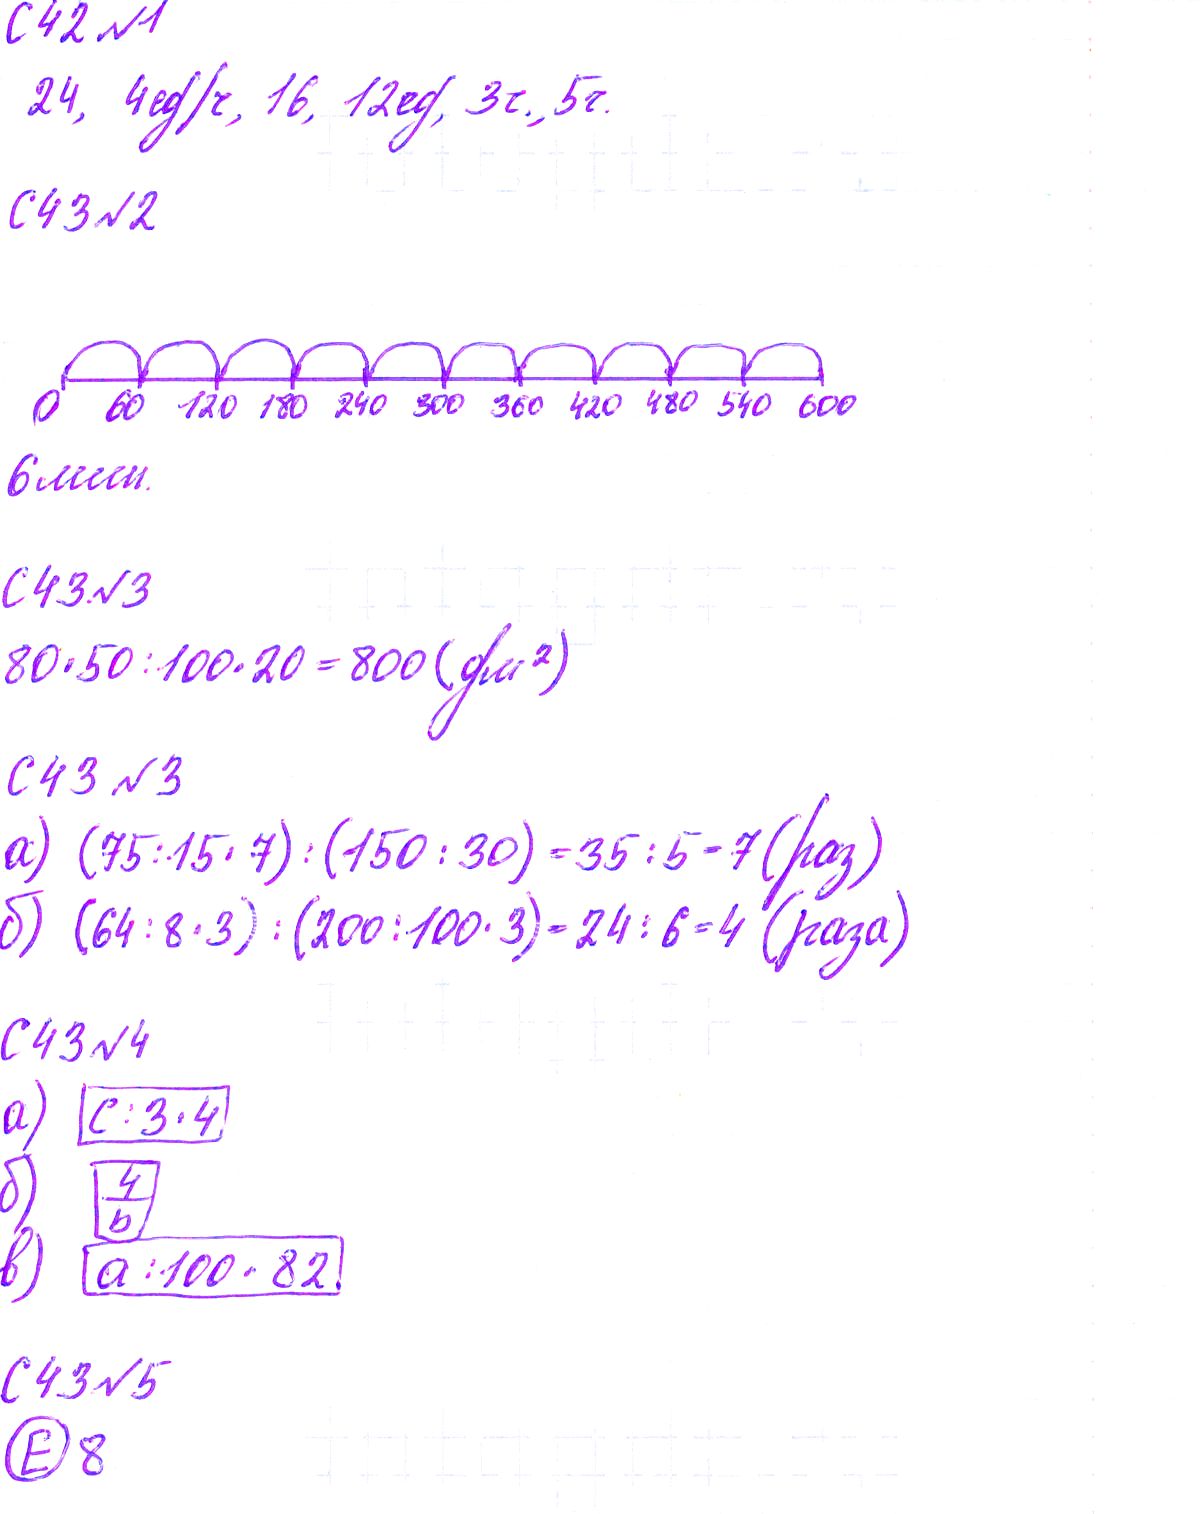 С42 №1
24, 4ед/ч, 16, 12ед, 3ч., 5ч.
С43 №2
0 60 120 180 240 300 360 420 480 540 600
6 мин.
С43 №3
80·50:100·20=800(дм²)
С43 №3
а) (75:15·7):(150:30)=35:5=7(раз)
б) (64:8·3):(200:100·3)=24:6=4 (раза)
С43 №4
а) с:3·4
б) 4/b
в) а:100·82
С43 №5
Е 8